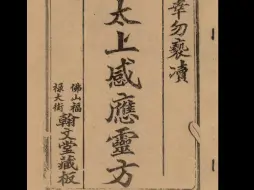 幸勿褻瀆
太上感應靈方
佛山福
祿大街
翰文堂藏板